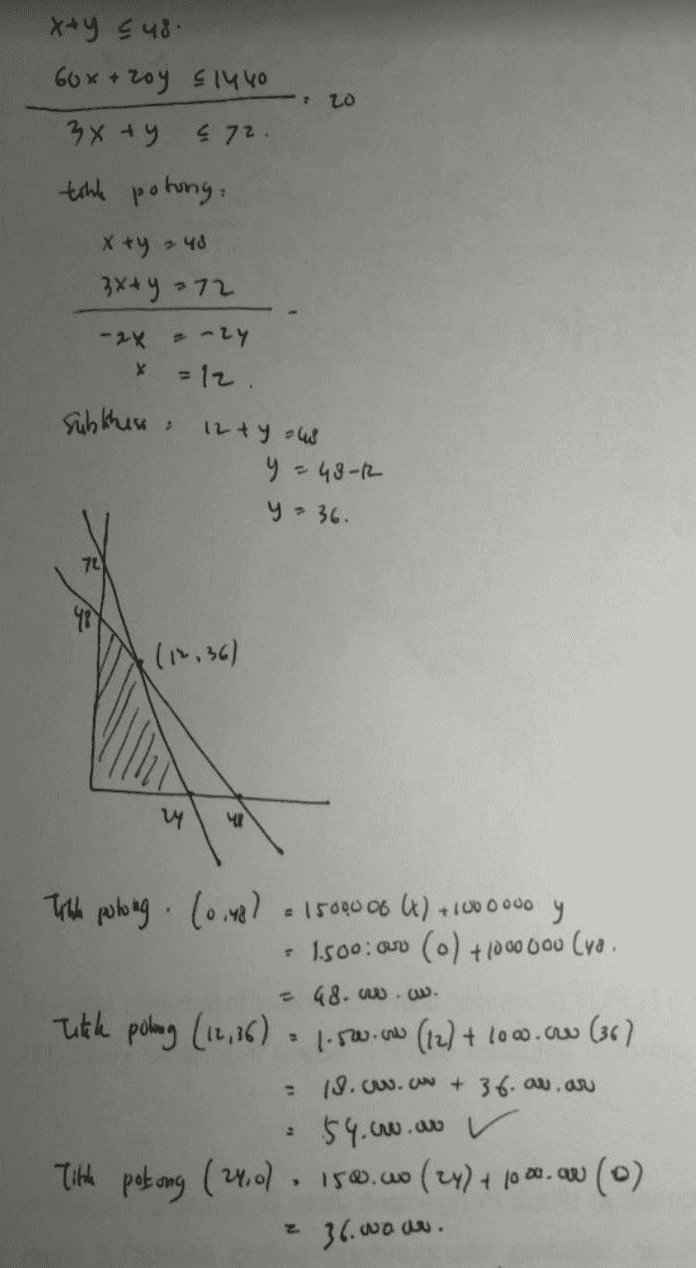 x+y ≤ 48.
60x + 20y ≤ 1440
: 20
3x + y ≤ 72.
titik potong:
x + y = 48
3x + y = 72
-
-2x = -24
x = 12.
Subtitusi : 12 + y = 48
y = 48-12
y = 36.
72
48
(12,36)
24 48
Titik potong . (0,48) = 1500000 (x) + 1000000 y
= 1.500.000 (0) + 1000000 (48.
= 48.000.000.
Titik potong (12,36) = 1.500.000 (12) + 1000.000 (36)
= 18.000.000 + 36.000.000
= 54.000.000 ✓
Titik potong (24,0) = 1500.000 (24) + 1000.000 (0)
= 36.000.000.